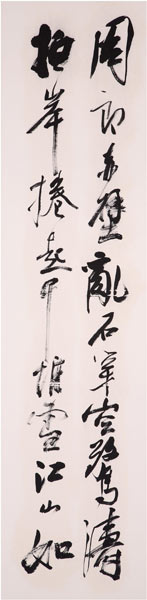 周郎赤壁亂石穿空驚濤
拍岸捲起千堆雪江山如